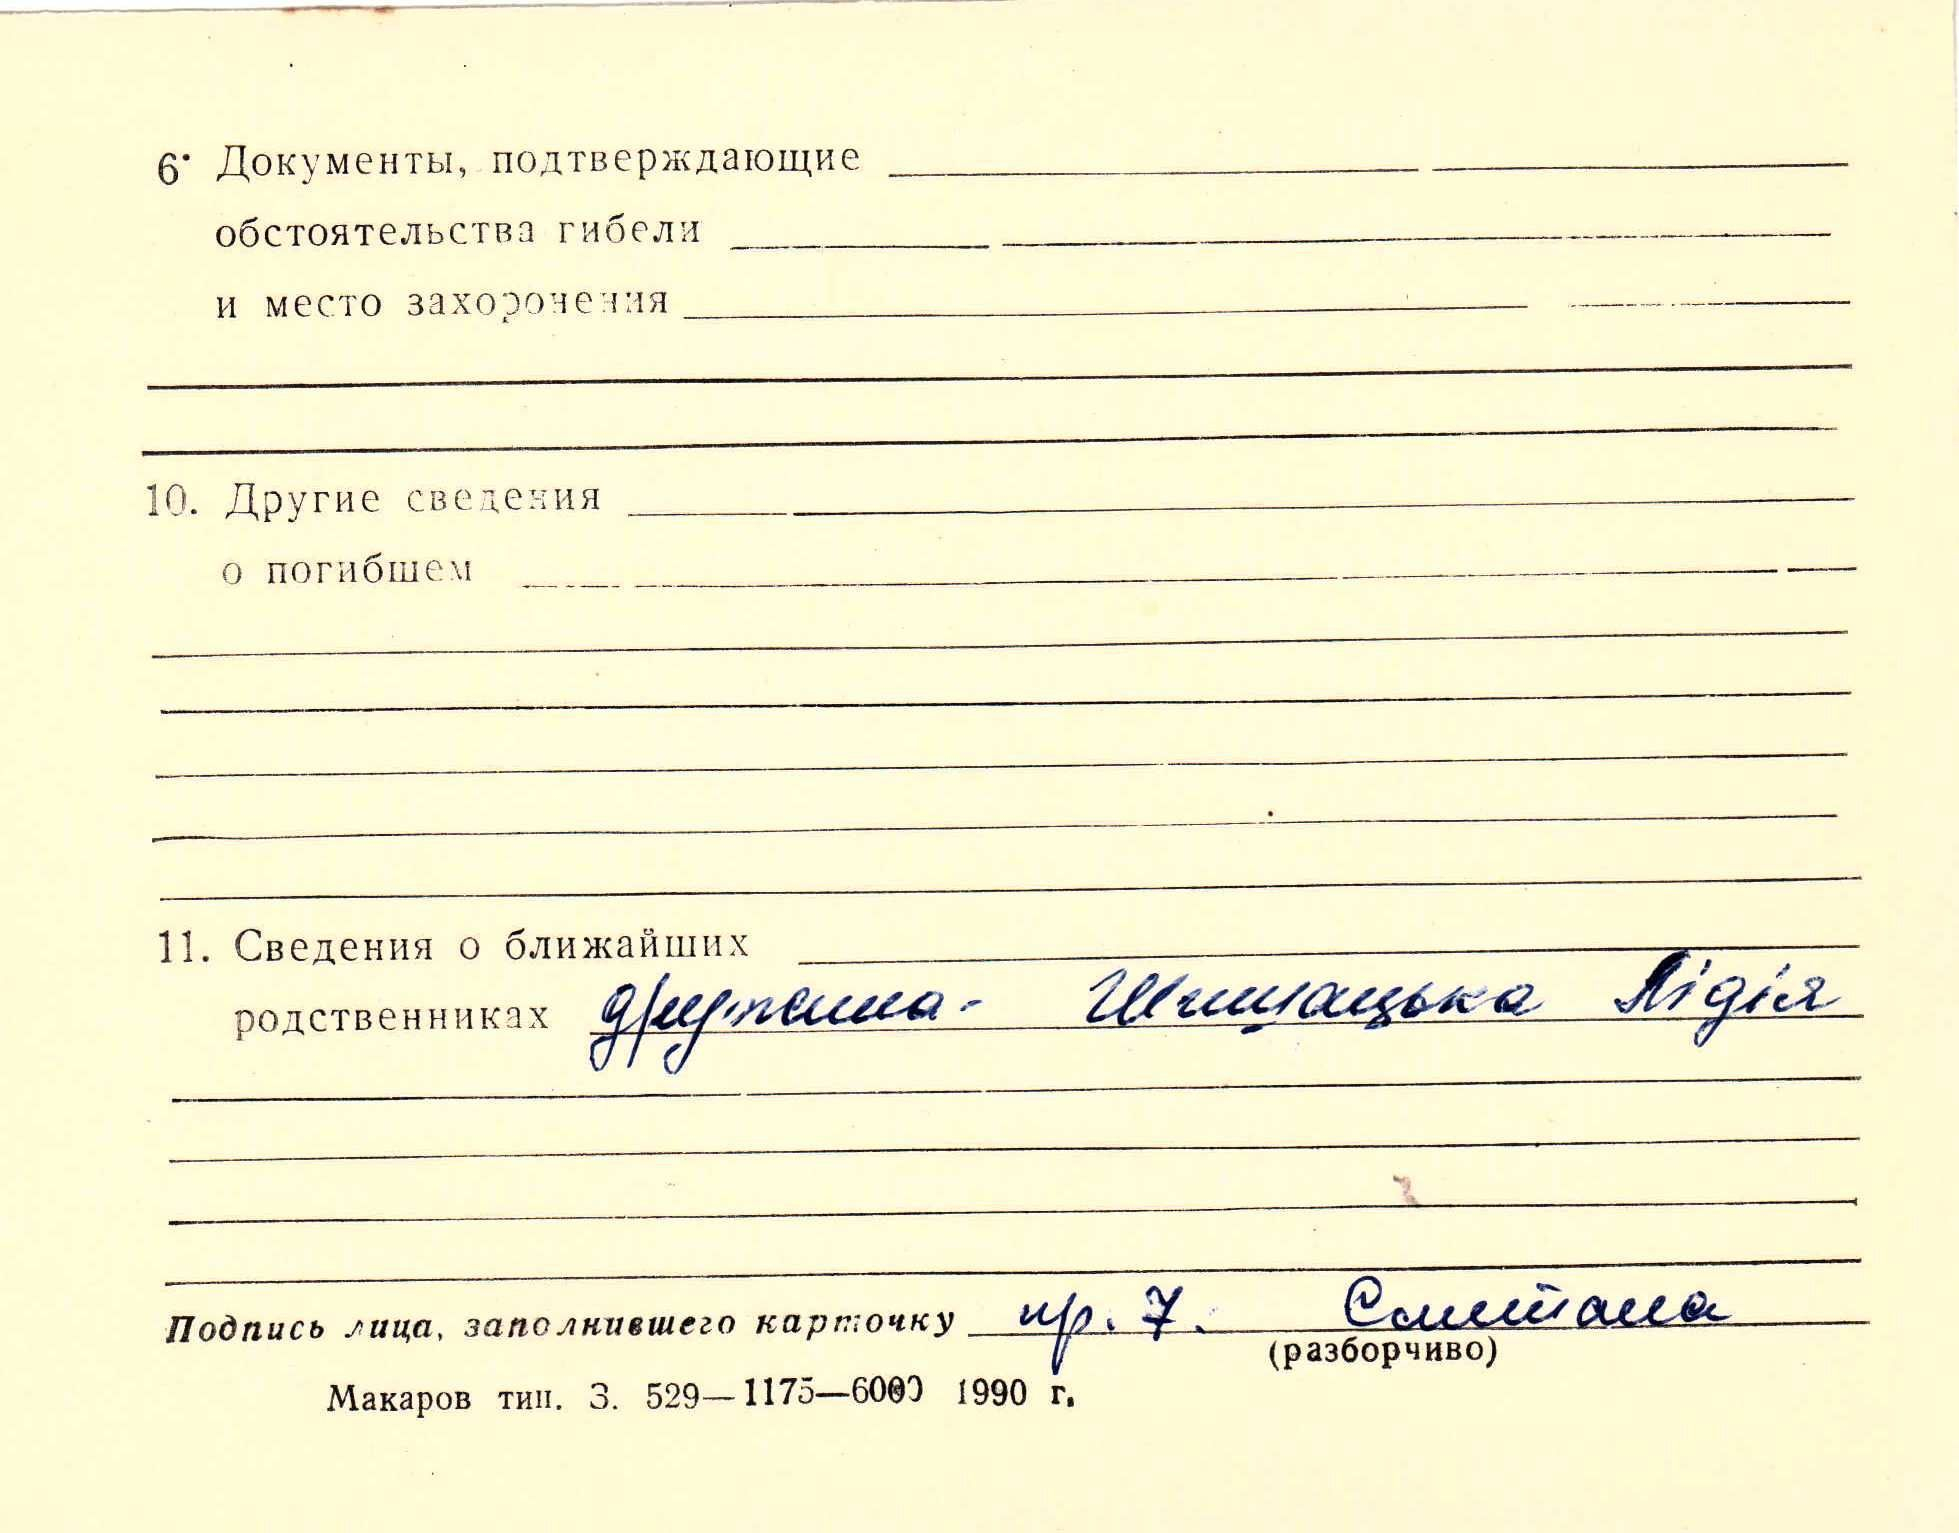 6. Документы, подтверждающие
обстоятельства гибели
и место захоронения
10. Другие сведения
о погибшем
11. Сведения о ближайших
родственниках дружина - Шишацька Лідія
Подпись лица, заполнившего карточку пр. 7. Сметана
(разборчиво)
Макаров тип. З. 529—1175—6000 1990 г.